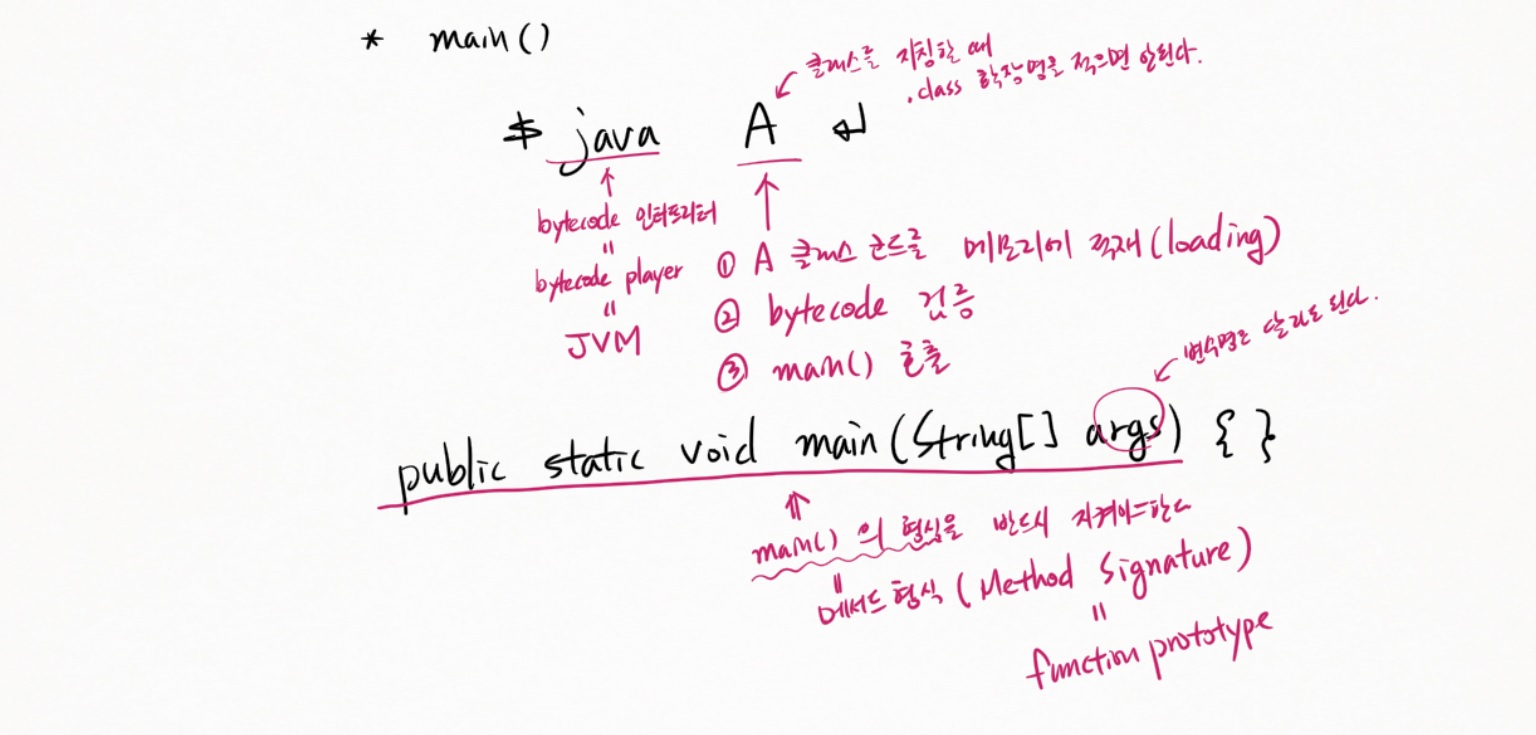 * main()
클래스를 지칭할 때
.class 확장명을 적으면 안된다.
$ java A ↵
↑
bytecode 인터프리터
"
bytecode player
"
JVM
① A 클래스 코드를 메모리에 적재(loading)
② bytecode 검증
③ main() 호출
변수명은 달라도 된다.
public static void main(String[] args) { }
main()의 형식을 반드시 지켜야한다
"
메서드 형식 (Method Signature)
"
function prototype